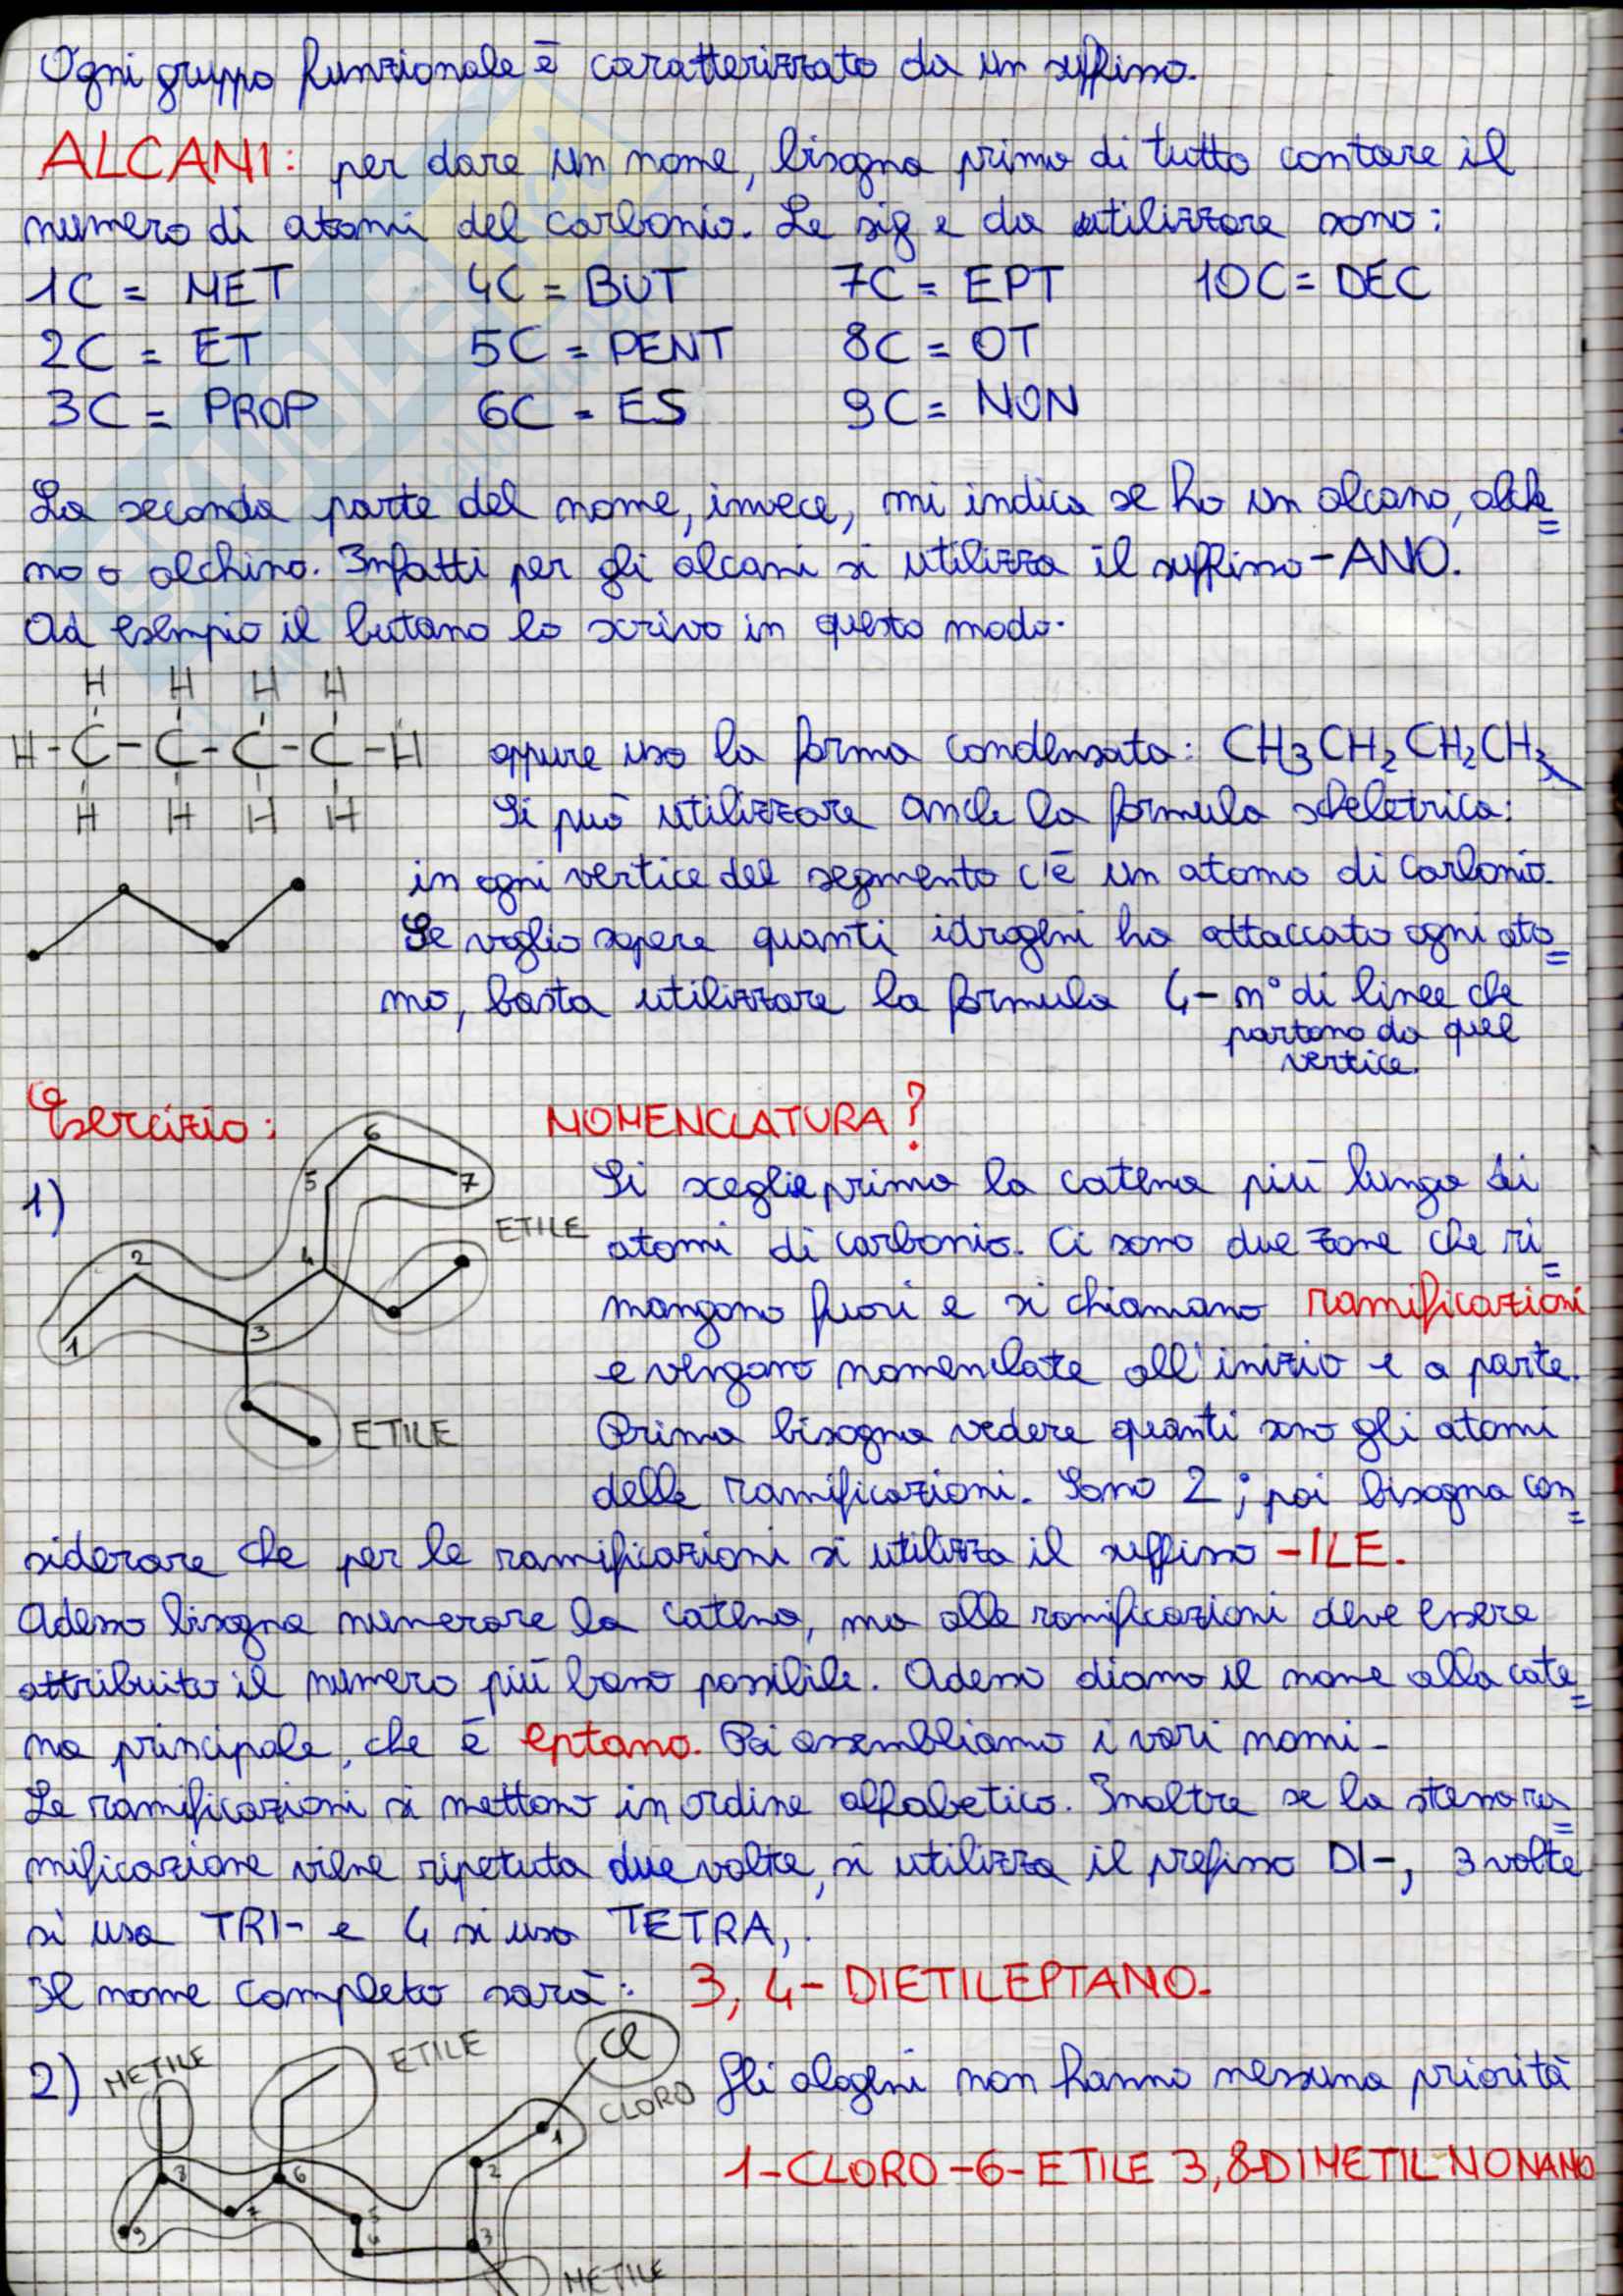 Ogni gruppo funzionale è caratterizzato da un suffisso.
ALCANI: per dare un nome, bisogna prima di tutto contare il
numero di atomi del carbonio. Le sig e da utilizzare sono:
1C = MET 4C = BUT 7C = EPT 10C = DEC
2C = ET 5C = PENT 8C = OT
3C = PROP 6C = ES 9C = NON
La seconda parte del nome, invece, mi indica se ho un alcano, alche=
no o alchino. Infatti per gli alcani si utilizza il suffisso -ANO.
Ad esempio il butano lo scrivo in questo modo.
H H H H
H-C-C-C-C-H oppure uso la forma condensata: CH3CH2CH2CH3
H H H H Si può utilizzare anche la formula scheletrica:
in ogni vertice del segmento c'è un atomo di carbonio.
Se voglio sapere quanti idrogeni ha attaccato ogni ato=
mo, basta utilizzare la formula 4- n° di linee che
partono da quel
vertice.
Esercizio: NOMENCLATURA?
1) 1 2 3 4 5 6 7
ETILE
ETILE
Si sceglie prima la catena più lunga di
atomi di carbonio. Ci sono due zone che ri=
mangono fuori e si chiamano ramificazioni
e vengono nomenclate all'inizio e a parte.
Prima bisogna vedere quanti sono gli atomi
delle ramificazioni. Sono 2; poi bisogna con=
siderare che per le ramificazioni si utilizza il suffisso -ILE.
Adesso bisogna numerare la catena, ma alle ramificazioni deve essere
attribuito il numero più basso possibile. Adesso diamo il nome alla cate=
na principale, che è eptano. Poi assembliamo i vari nomi.
Le ramificazioni si mettono in ordine alfabetico. Inoltre se la stessa ra=
mificazione viene ripetuta due volte, si utilizza il prefisso DI-, 3 volte
si usa TRI- e 4 si usa TETRA,.
Il nome completo sarà: 3, 4- DIETILEPTANO.
2) METILE ETILE Cl CLORO Gli alogeni non hanno nessuna priorità
1-CLORO-6-ETILE 3,8-DIMETIL NONANO
1 2 3 5 6 7 9
METILE